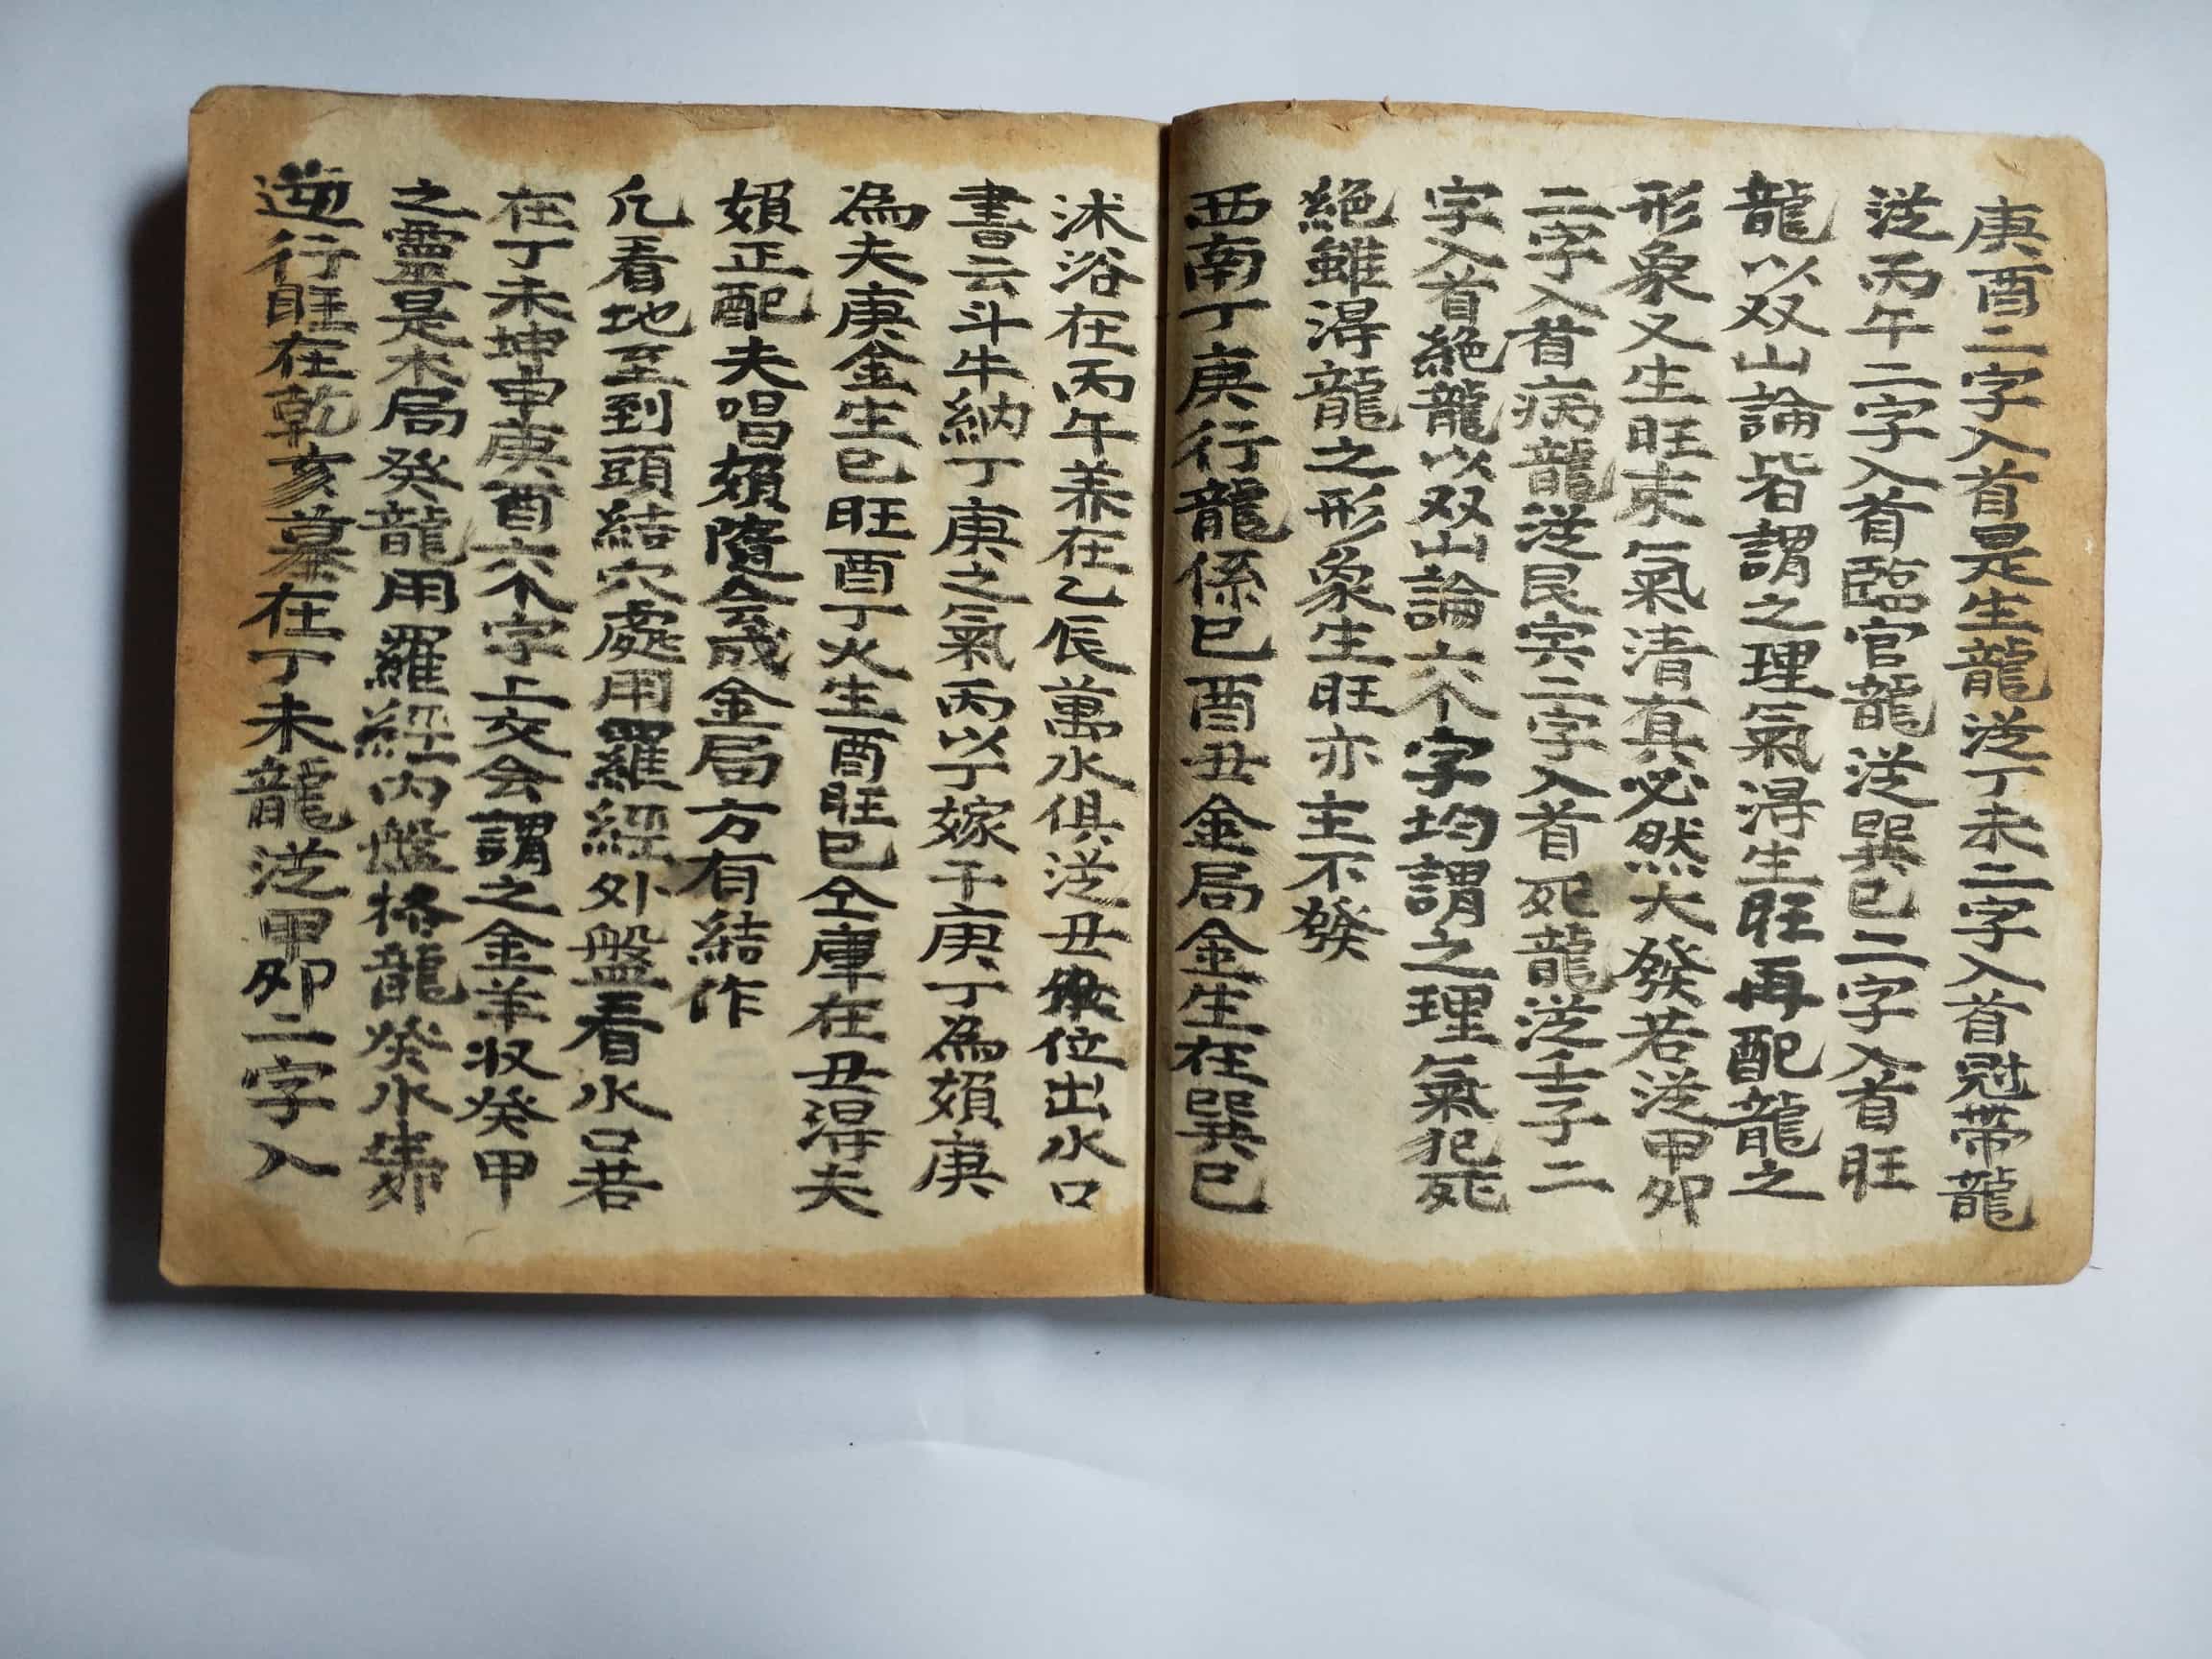 庚酉二字入首是生龍從丁未二字入首冠帶龍
從丙午二字入首臨官龍從巽巳二字入首旺
龍以双山論皆謂之理氣得生旺再配龍之
形象又生旺束氣清真必然大發若從甲卯
二字入首病龍從艮寅二字入首死龍從壬子二
字入首絕龍以双山論六个字均謂之理氣犯死
絕雖得龍之形象生旺亦主不發
西南丁庚行龍係巳酉丑金局金生在巽巳
沐浴在丙午养在乙辰萬水俱從丑位出水口
書云斗牛納丁庚之氣丙以丁嫁于庚丁為嬪庚
為夫庚金生巳旺酉丁火生酉旺巳仝庫在丑得夫
嬪正配夫唱嬪隨会成金局方有結作
凢看地至到頭結穴處用羅經外盤看水口若
在丁未坤申庚酉六个字上交会謂之金羊収癸甲
之靈是木局癸龍用羅經内盤格龍癸水生卯
逆行旺在乾亥墓在丁未龍從甲卯二字入